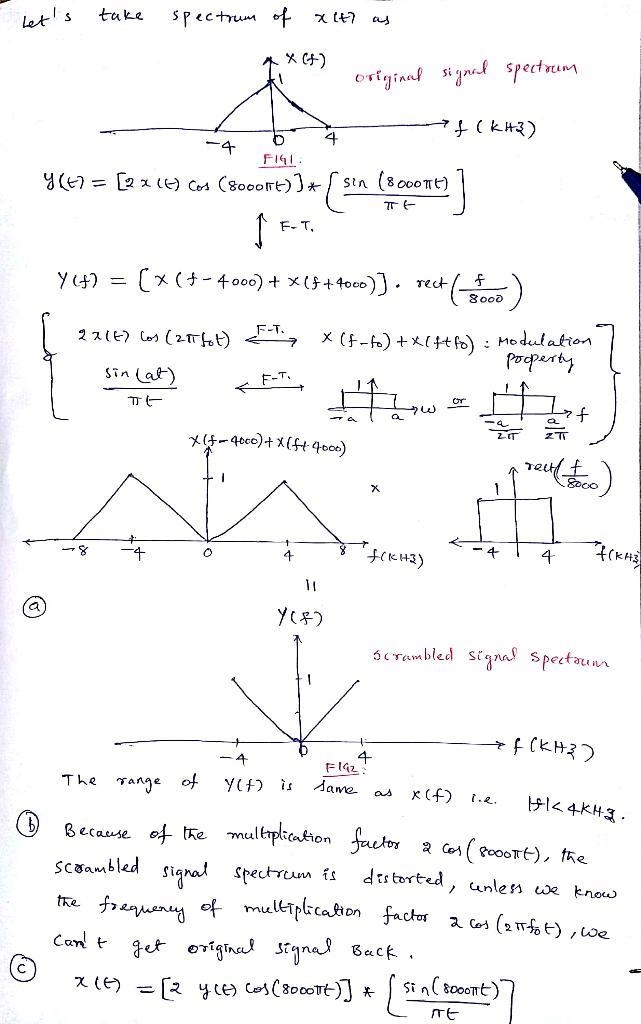 Let's take spectrum of x(t) as
X(f)
1
original signal spectrum
-4 0 4 f(kHz)
FIG1.
y(t) = [2x(t) cos(8000πt)] * [sin(8000πt)/πt]
↕ F.T.
Y(f) = [X(f-4000) + X(f+4000)] . rect(f/8000)
2x(t) cos(2πf₀t) ⟷ F.T. X(f-f₀) + X(f+f₀) : Modulation property
sin(at)/πt ⟷ F.T. 1 -a a ω or 1 -a/2π a/2π f
X(f-4000)+X(f+4000)
rect(f/8000)
1 x 1
-8 -4 0 4 8 f(kHz) -4 4 f(kHz)
||
(a)
Y(f)
1
scrambled signal spectrum
-4 0 4 f(kHz)
FIG2:
The range of Y(f) is same as X(f) i.e. |f|<4kHz.
(b) Because of the multiplication factor 2 cos(8000πt), the
scrambled signal spectrum is distorted, unless we know
the frequency of multiplication factor 2 cos(2πf₀t), we
can't get original signal Back.
(c) x(t) = [2 y(t) cos(8000πt)] * [sin(8000πt)/πt]